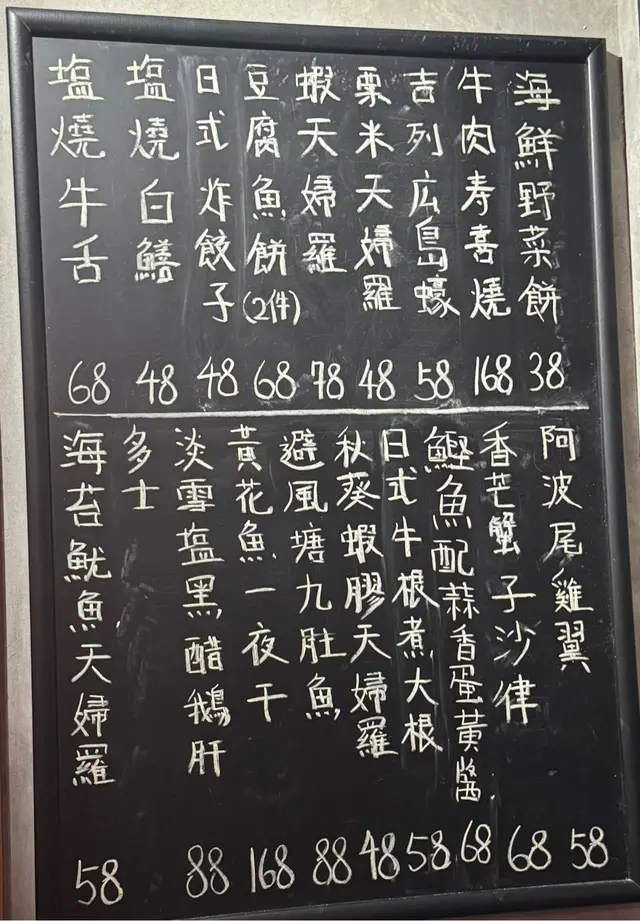 海鮮野菜餅 38
牛肉寿喜燒 168
吉列広島蠔 58
栗米天婦羅 48
蝦天婦羅 78
豆腐魚餅(2件) 68
日式炸餃子 48
塩燒白鱔 48
塩燒牛舌 68
阿波尾雞翼 58
香芒蟹子沙律 68
鰹魚配蒜香蛋黃醬 68
日式牛根煮大根 58
秋葵蝦膠天婦羅 48
避風塘九肚魚 88
黃花魚一夜干 168
淡雪塩黑醋鵝肝 88
多士
海苔魷魚天婦羅 58